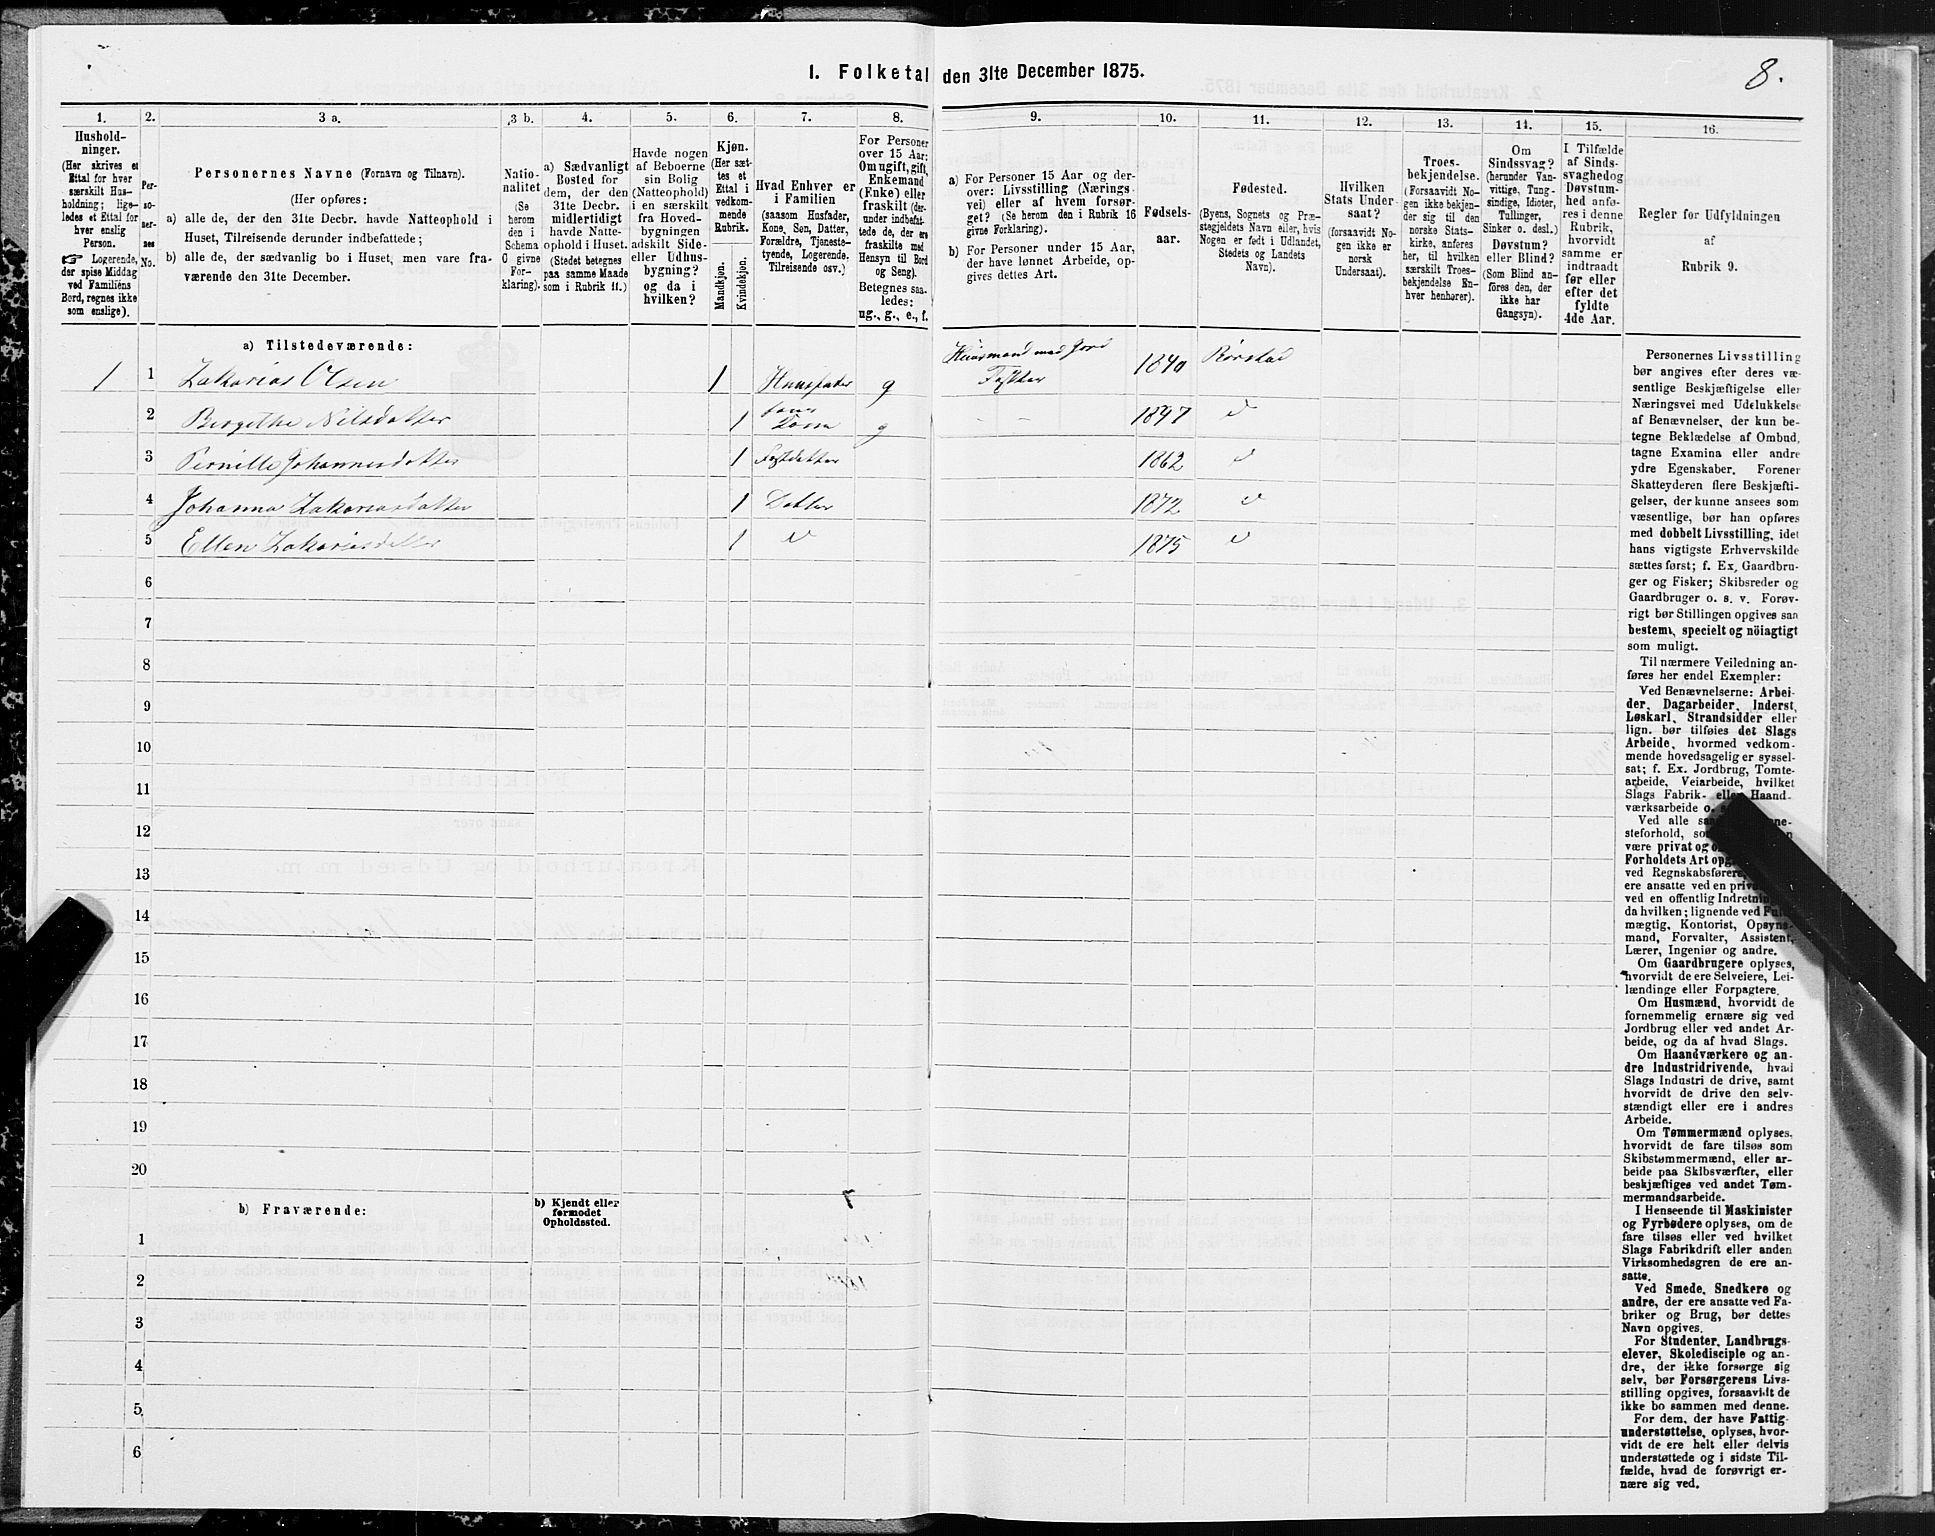 I. Folketal den 31te December 1875.
8.
1.
2.
3 a.
3 b.
4.
5.
6.
7.
8.
9.
10.
11.
12.
13.
14.
15.
16.
Hushold-
ninger.
(Her skrives et
Ettal for hver
særskilt Hus-
holdning; lige-
ledes et Ettal for
hver enslig
Person.
☞ Logerende,
der spise Middag
ved Familiens
Bord, regnes ikke
som enslige).
Per-
so-
ner-
nes
No.
Personernes Navne (Fornavn og Tilnavn).
(Her opføres:
a) alle de, der den 31te Decbr. havde Natteophold i
Huset, Tilreisende derunder indbefattede;
b) alle de, der sædvanlig bo i Huset, men vare fra-
værende den 31te December.
Natio-
nalitet
(Se
herom
den i
Schema
O givne
For-
klaring).
a) Sædvanligt
Bosted for
dem, der den
31te Decbr.
midlertidigt
havde Natte-
ophold i Huset.
(Stedet betegnes
paa samme Maade
som i Rubrik 11.)
Havde nogen
af Beboerne
sin Bolig
(Natteophold)
i en særskilt
fra Hoved-
bygningen
adskilt Side-
eller Udhus-
bygning?
og da i
hvilken?
Kjøn.
(Her sæt-
tes et
Ettal i
vedkom-
mende
Rubrik.
Mandkjøn.
Kvindekjøn.
Hvad Enhver er
i Familien
(saasom Husfader,
Kone, Søn, Datter,
Forældre, Tjeneste-
tyende, Logerende.
Tilreisende osv.)
For Personer
over 15 Aar:
Om ugift, gift,
Enkemand
(Enke) eller
fraskilt (der-
under indbefat-
tede de, der ere
fraskilte med
Hensyn til Bord
og Seng).
Betegnes saa-
ledes:
ug., g., e., f.
a) For Personer 15 Aar og der-
over: Livsstilling (Nærings-
vei) eller af hvem forsør-
get? (Se herom den i Rubrik 16
givne Forklaring).
b) For Personer under 15 Aar,
der have lønnet Arbeide, op-
gives dettes Art.
Fødsels-
aar.
Fødested.
(Byens, Sognets og Præ-
stegjeldets Navn eller, hvis
Nogen er født i Udlandet,
Stedets og Landets
Navn).
Hvilken
Stats Under-
saat?
(forsaavidt No-
gen ikke er
norsk
Undersaat).
Troes-
bekjendelse.
(Forsaavidt No-
gen ikke bekjen-
der sig til den
norske Stats-
kirke, anføres
her, til hvilken
særskilt Troes-
bekjendelse En-
hver henhører).
Om
Sindssvag?
(herunder Van-
vittige, Tung-
sindige, Idioter,
Tullinger,
Sinker o. desl.)
Døvstum?
eller Blind?
(Som Blind an-
føres den, der
ikke har
Gangsyn).
I Tilfælde
af Sinds-
svaghed og
Døvstum-
hed anfø-
res i denne
Rubrik,
hvorvidt
samme er
indtraadt
før eller
efter det
fyldte
4de Aar.
Regler før Udfyldningen
af
Rubrik 9.
a) Tilstedeværende:
1 1 Zakarias Olsen 1 Huusfader g Huusmand med Jord Fisker 1840 Rørstad
2 Birgithe Nilsdatter 1 hans Kone g - - 1847 d
3 Pernille Johannesdatter 1 Fostdatter 1862 d
4 Johanna Zakariasdatter 1 Datter 1872 d
5 Ellen Zakariasdatter 1 d 1875 d
6
7
8
9
10
11
12
13
14
15
16
17
18
19
20
b) Fraværende:
b) Kjendt eller
formodet
Opholdssted.
1
2
3
4
5
6
Personernes Livsstilling
bør angives efter deres væ-
sentlige Beskjæftigelse eller
Næringsvei med Udelukkelse
af Benævnelser, der kun be-
tegne Beklædelse af Ombud,
tagne Examina eller andre
ydre Egenskaber. Forener
Skatteyderen flere Beskjæfti-
gelser, der kunne ansees som
væsentlige, bør han opføres
med dobbelt Livsstilling, idet
hans vigtigste Erhvervskilde
sættes først; f. Ex. Gaardbru-
ger og Fisker; Skibsreder og
Gaardbruger o. s. v. Forøv-
rigt bør Stillingen opgives saa
bestemt, specielt og nöiagtigt
som muligt.
Til nærmere Veiledning an-
føres her endel Exempler:
Ved Benævnelserne: Arbei-
der, Dagarbeider, Inderst,
Løskarl, Strandsidder eller
lign. bør tilføies det Slags
Arbeide, hvormed vedkom-
mende hovedsagelig er syssel-
sat; f. Ex. Jordbrug, Tomte-
arbeide, Veiarbeide, hvilket
Slags Fabrik- eller Haand-
værksarbeide o.
Ved alle
steforhold,
være privat og
Forholdets Art
ved Regnskabsførere,
ere ansatte ved en
ved en offentlig Indretning
da hvilken; lignende ved
mægtig, Kontorist, Opsyns-
mand, Forvalter, Assistent,
Lærer, Ingeniør og andre.
Om Gaardbrugere oplyses,
hvorvidt de ere Selveiere, Lei-
lændinge eller Forpagtere.
Om Husmænd, hvorvidt de
fornemmelig ernære sig ved
Jordbrug eller ved andet Ar-
beide, og da af hvad Slags.
Om Haandværkere og an-
dre Industridrivende, hvad
Slags Industri de drive, samt
hvorvidt de drive den selv-
stændigt eller ere i andres
Arbeide.
Om Tømmermænd oplyses,
hvorvidt de fare tilsøs som
Skibstømmermænd, eller ar-
beide paa Skibsværfter, eller
beskjæftiges ved andet Tøm-
mermandsarbeide.
I Henseende til Maskinister
og Fyrbødere oplyses, om de
fare tilsøs eller ved hvilket
Slags Fabrikdrift eller anden
Virksomhedsgren de ere an-
satte.
Ved Smede, Snedkere og
andre, der ere ansatte ved Fa-
briker og Brug, bør dettes
Navn opgives.
For Studenter, Landbrugs-
elever, Skoledisciple og an-
dre, der ikke forsørge sig
selv, bør Forsørgerens Livs-
stilling opgives, forsaavidt de
ikke bo sammen med denne.
For dem, der have Fattig-
understøttelse, oplyses, hvor-
vidt de ere helt eller delvis
understøttede og i sidste Til-
fælde, hvad de forøvrigt er-
nære sig ved.